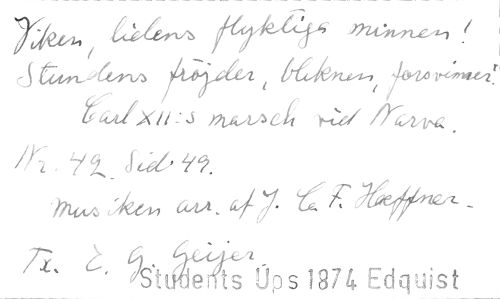 Viken, tidens flyktiga minnen!
Stundens fröjder, bleknen, försvinnen!
Carl XII:s marsch vid Narva.
Nr. 42. Sid 49.
Musiken arr. af J. C. F. Hæffner.
Tx. E. G. Geijer.
Students Ups 1874 Edquist